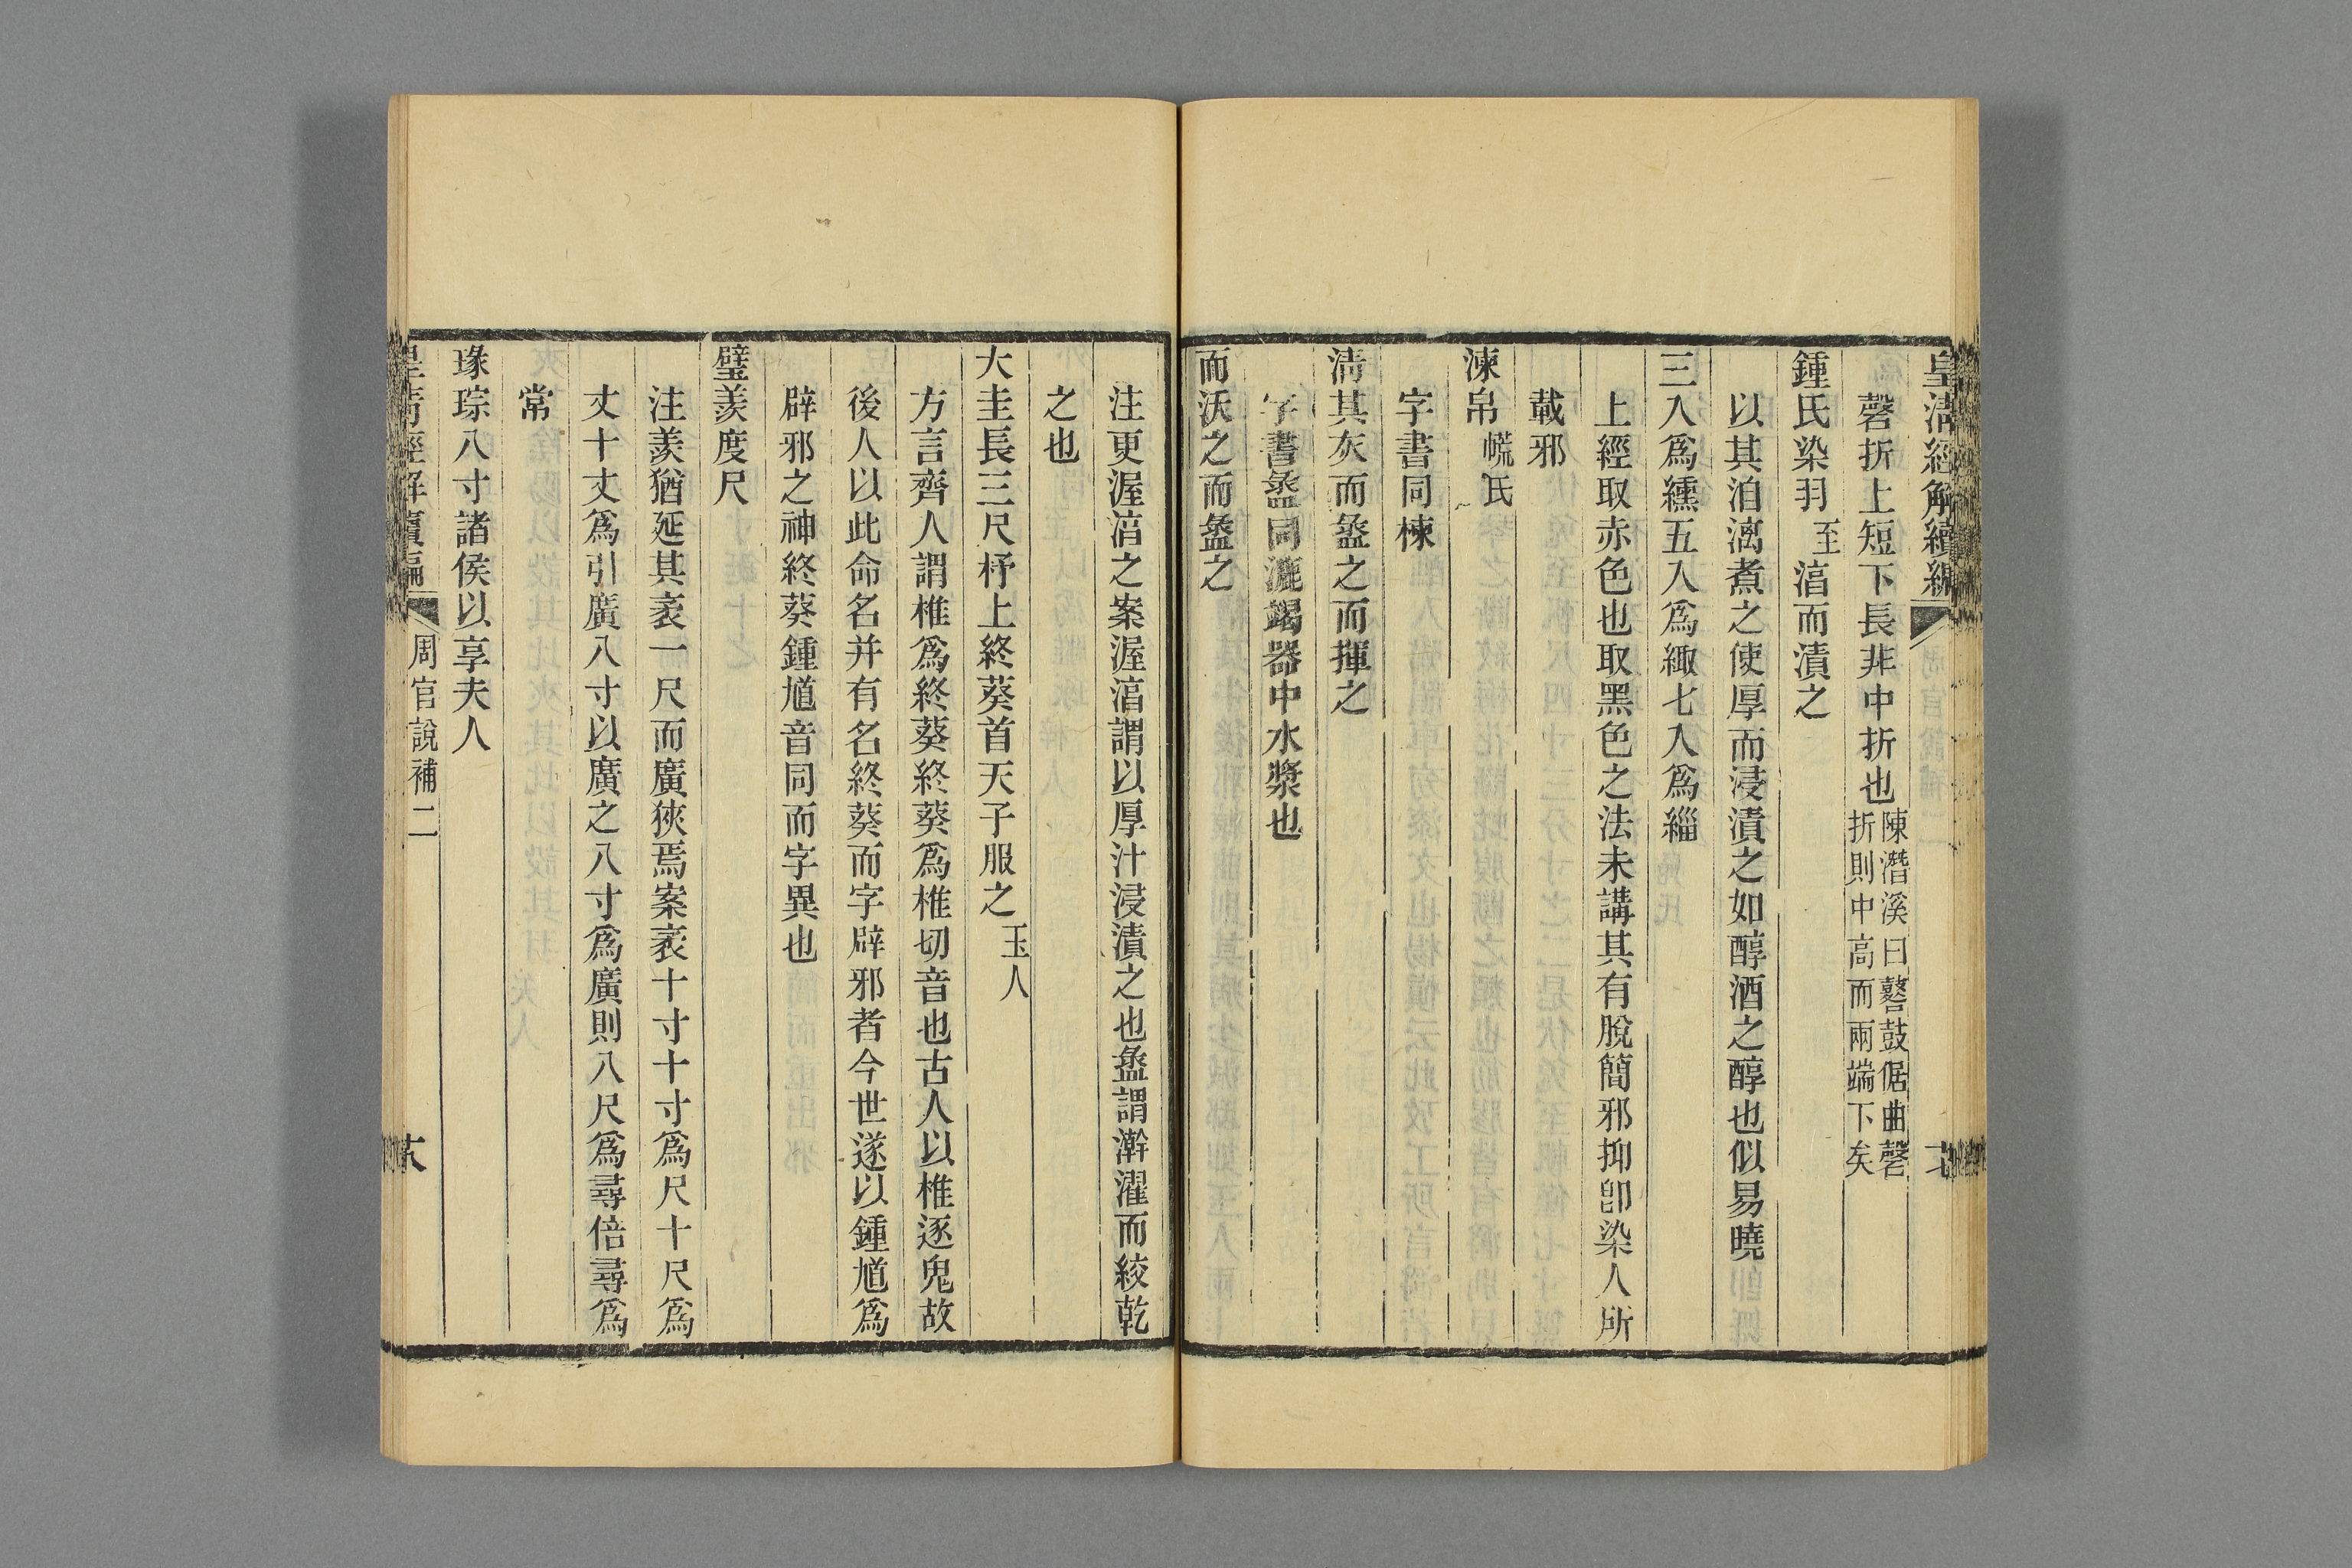 皇清經解續編
磬折上短下長非中折也陳潛溪曰鼛鼓倨曲磬
折則中高而兩端下矣
鍾氏染羽至湻而漬之
以其洎漓煮之使厚而浸漬之如醇酒之醇也似易曉
三入爲纁五入爲緅七入爲緇
上經取赤色也取黑色之法未講其有脫簡邪抑卽染人所
載邪
湅帛㡛氏
字書同楝
淸其灰而盝之而揮之
字書盝同漉竭器中水漿也
而沃之而盝之
注更渥湻之案渥湻謂以厚汁浸漬之也盝謂澣濯而絞乾
之也
大圭長三尺杼上終葵首天子服之玉人
方言齊人謂椎爲終葵終葵爲椎切音也古人以椎逐鬼故
後人以此命名并有名終葵而字辟邪者今世遂以鍾馗爲
辟邪之神終葵鍾馗音同而字異也
璧羨度尺
注羨猶延其袤一尺而廣狹焉案袤十寸十寸爲尺十尺爲
丈十丈爲引廣八寸以廣之八寸爲廣則八尺爲尋倍尋爲
常
瑑琮八寸諸侯以享夫人
皇淸經解續編
周官說補二